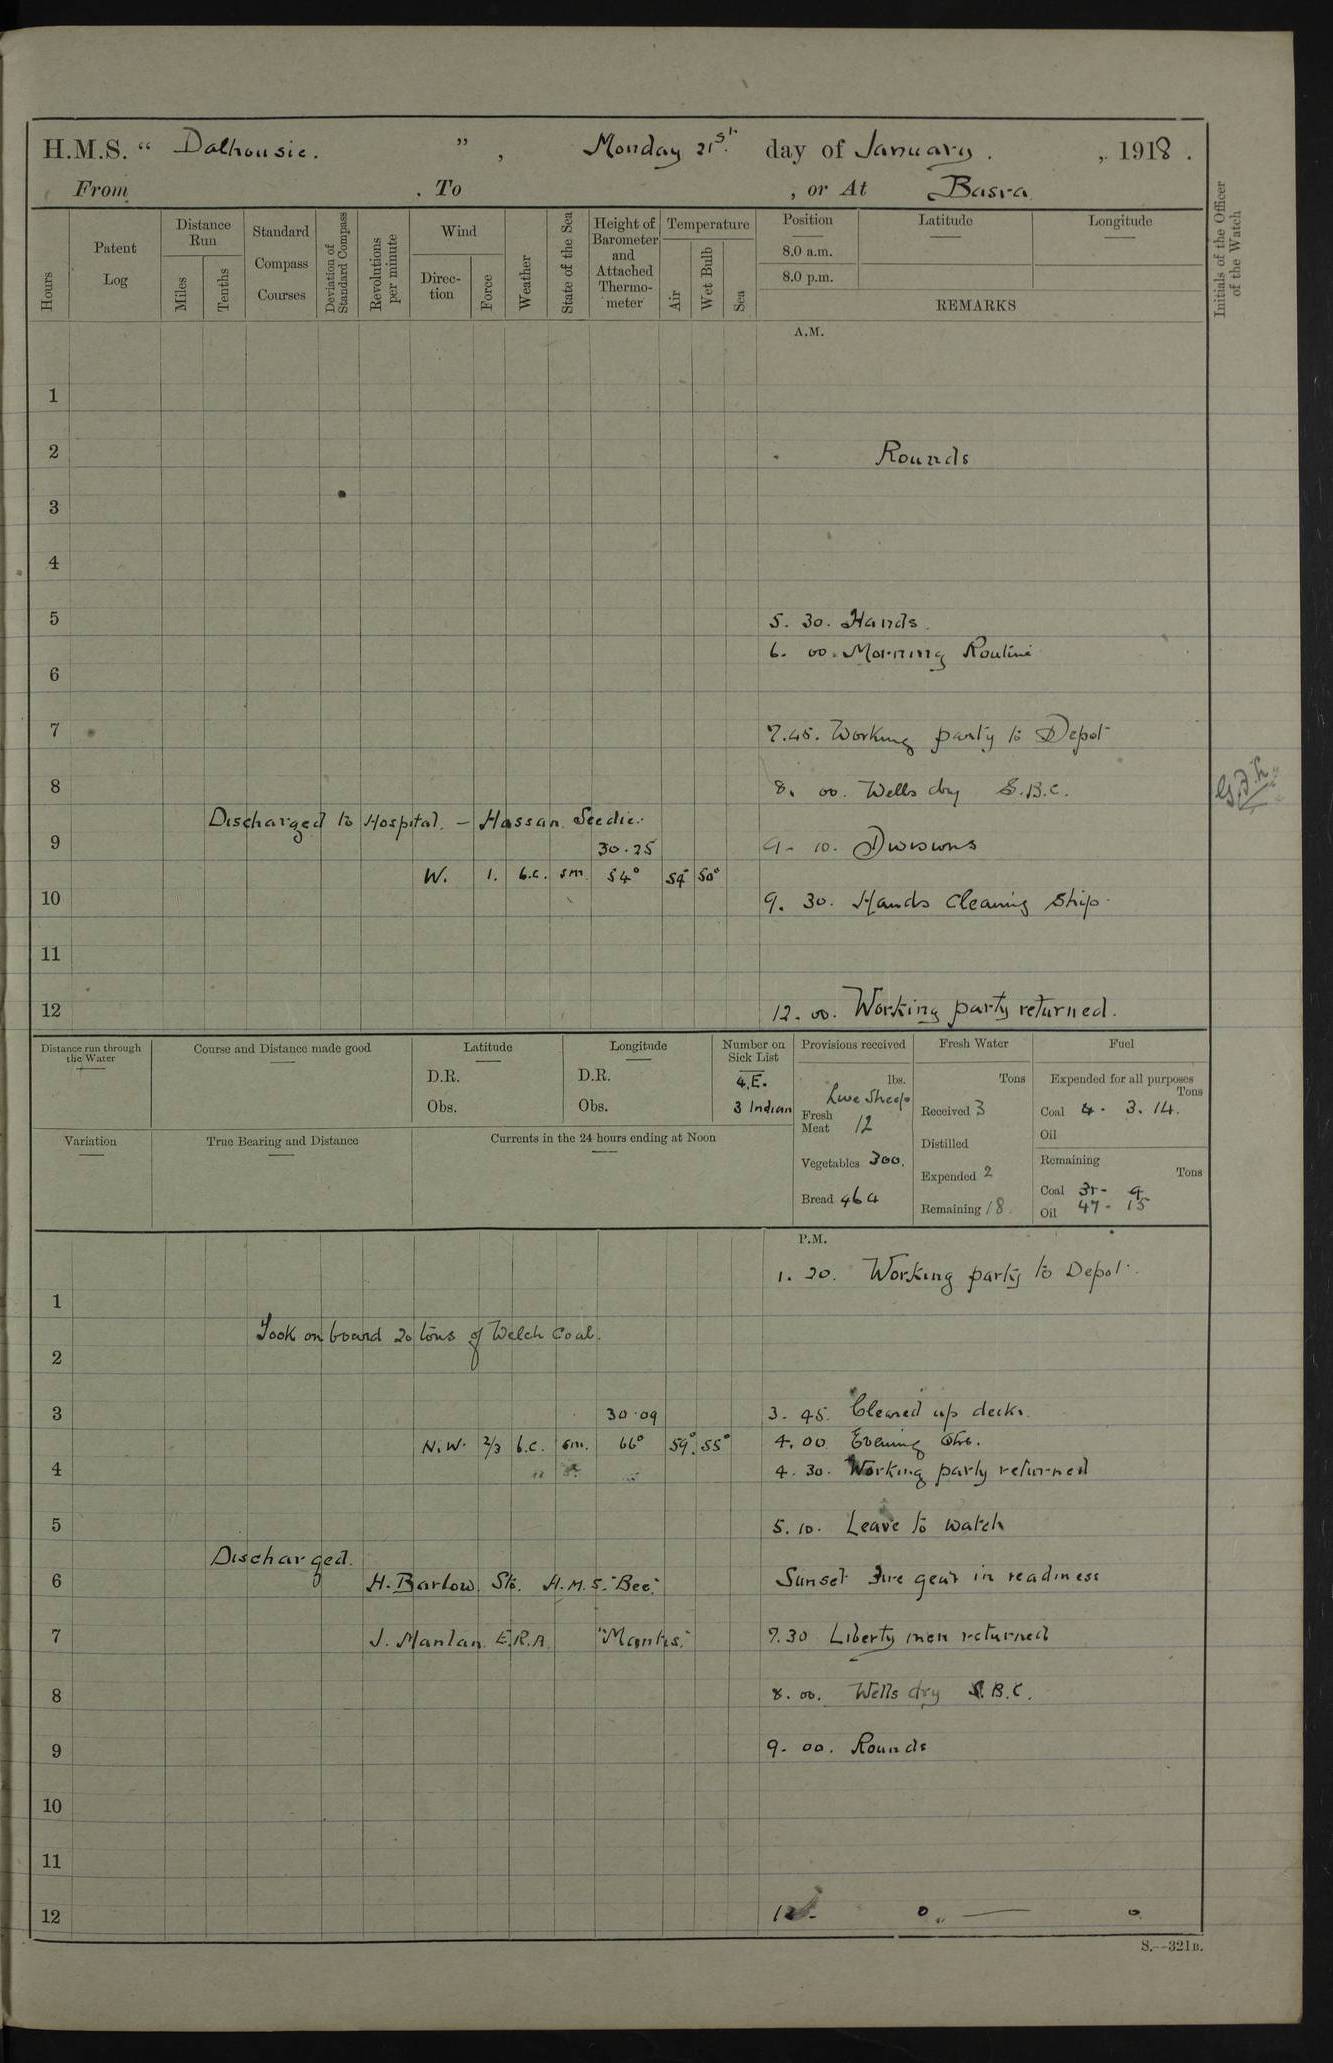 H.M.S. “ Dalhousie. ” , Monday 21st day of January. , 1918 .
From . To , or At Basra
Hours
Patent Log
Distance Run
Miles
Tenths
Standard Compass Courses
Deviation of Standard Compass
Revolutions per minute
Wind
Direction
Force
Weather
State of the Sea
Height of Barometer and Attached Thermometer
Temperature
Air
Wet Bulb
Sea
Position
Latitude
Longitude
8.0 a.m.
8.0 p.m.
REMARKS
Initials of the Officer of the Watch
A.M.
1
2 Rounds
3
4
5 5. 30. Hands.
6. 00. Morning Routine
6
7 7.45. Working party to Depot
8 8. 00. Wells dry S.B.C.
Discharged to Hospital. – Hassan Seedie.
9 30.25 9. 10. Divisions
W. 1. b.c. sm. 54° 54° 50°
10 9. 30. Hands Cleaning Ship.
11
12 12. 00. Working party returned.
Distance run through the Water
Course and Distance made good
Latitude
D.R.
Obs.
Longitude
D.R.
Obs.
Number on Sick List
4.E.
3 Indian
Provisions received
lbs.
Live Sheep
Fresh Meat 12
Vegetables 300.
Bread 464
Fresh Water
Tons
Received 3
Distilled
Expended 2
Remaining 18.
Fuel
Expended for all purposes
Tons
Coal 4. 3. 14.
Oil
Remaining
Tons
Coal 31- 9
Oil 47- 15
Variation
True Bearing and Distance
Currents in the 24 hours ending at Noon
P.M.
1. 20. Working party to Depot.
1
Took on board 20 tons of Welch Coal.
2
3 30.09 3. 45. Cleared up decks.
N.W. 2/3 b.c. sm. 66° 59° 55° 4. 00 Evening Qrs.
4 4. 30. Working party returned
5 5. 10. Leave to watch
Discharged.
6 H. Barlow. Sto. H.M.S. "Bee." Sunset Fire gear in readiness
7 J. Manlan E.R.A. "Mantis." 7.30 Liberty men returned
8 8. 00. Wells dry S.B.C.
9 9. 00. Rounds
10
11
12 12.
S.—321B.